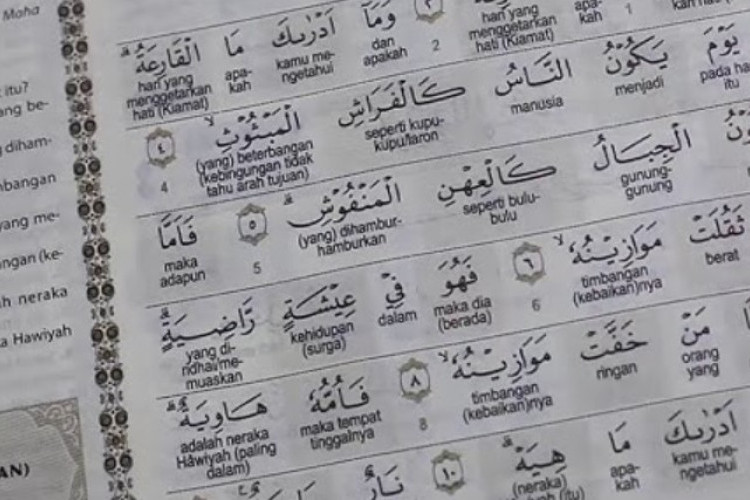 Maha
itu?
ang be-
diham-
nbangan
yang me-
ngan (ke-
ah neraka
Hawiyah
AN)
٢ وَمَآ اَدْرٰىكَ مَا الْقَارِعَةُ ۗ
hari yang menggetarkan hati (Kiamat) apa-kah 1
2 dan apakah kamu me-ngetahui apa-kah hari yang menggetarkan hati (Kiamat)
يَوْمَ يَكُوْنُ النَّاسُ كَالْفَرَاشِ الْمَبْثُوْثِۙ ٤
pada ha itu menjadi manusia seperti kupu-kupu/laron (yang) beterbangan (kebingungan tidak tahu arah tujuan) 4
الْجِبَالُ كَالْعِهْنِ الْمَنْفُوْشِۗ ٥ فَاَمَّا
gunung-gunung seperti bulu-bulu (yang) dihambur-hamburkan 5 maka adapun
ثَقُلَتْ مَوَازِيْنُهٗۙ ٦ فَهُوَ فِيْ عِيْشَةٍ رَّاضِيَةٍۗ
berat timbangan (kebaikan)nya 6 maka dia (berada) dalam kehidupan (surga) yang di-ridhai/me-muaskan
مَنْ خَفَّتْ مَوَازِيْنُهٗۙ ٨ فَاُمُّهٗ هَاوِيَةٌ ۗ
orang yang ringan timbangan (kebaikan)nya 8 maka tempat tinggalnya adalah neraka Hâwiyah (paling dalam)
اَدْرٰىكَ مَا هِيَهْۗ ١٠ نَارٌ
kamu me-ngetahui apa-kah (neraka)